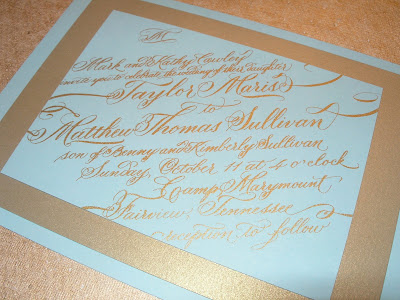 M
Mark and Kathy Cawley
invite you to celebrate the wedding of their daughter
Taylor Marise
to
Matthew Thomas Sullivan
son of Benny and Kimberly Sullivan
Sunday, October 11 at 4 o'clock
Camp Marymount
Fairview, Tennessee
reception to follow